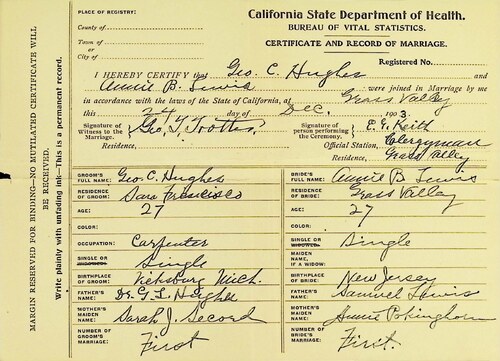 California State Department of Health.
BUREAU OF VITAL STATISTICS.
CERTIFICATE AND RECORD OF MARRIAGE.
PLACE OF REGISTRY:
County of
Town of
or
City of
Registered No.
I HEREBY CERTIFY that Geo. C. Hughes and
Annie B. Lewis were joined in Marriage by me
in accordance with the laws of the State of California, at Grass Valley
this 24 day of Dec. 1903
Signature of Witness to the Marriage, Geo. T. Trotter
Signature of person performing the Ceremony, E. G. Keith
Residence,
Official Station, Clergyman
Residence, Grass Valley
GROOM'S FULL NAME: Geo. C. Hughes
BRIDE'S FULL NAME: Annie B Lewis
RESIDENCE OF GROOM: San Francisco
RESIDENCE OF BRIDE: Grass Valley
AGE: 27
AGE: 27
COLOR:
COLOR:
OCCUPATION: Carpenter
SINGLE OR WIDOWED: Single
SINGLE OR WIDOWED: Single
MAIDEN NAME, IF A WIDOW:
BIRTHPLACE OF GROOM: Vicksburg Mich.
BIRTHPLACE OF BRIDE: New Jersey
FATHER'S NAME: Dr. G. L. Hughes
FATHER'S NAME: Samuel Lewis
MOTHER'S MAIDEN NAME: Sarah J. Secord
MOTHER'S MAIDEN NAME: Annie
NUMBER OF GROOM'S MARRIAGE: First
NUMBER OF BRIDE'S MARRIAGE: First.
MARGIN RESERVED FOR BINDING—NO MUTILATED CERTIFICATE WILL
BE RECEIVED.
Write plainly with unfading ink—This is a permanent record.